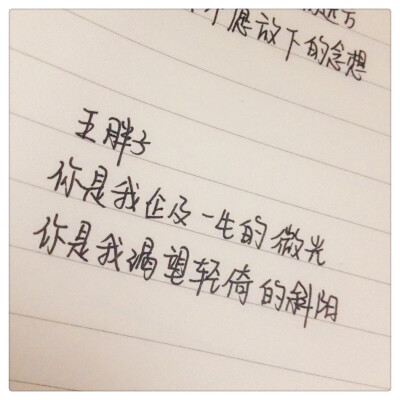 不愿放下的念想
王胖子
你是我企及一生的微光
你是我渴望轻倚的斜阳